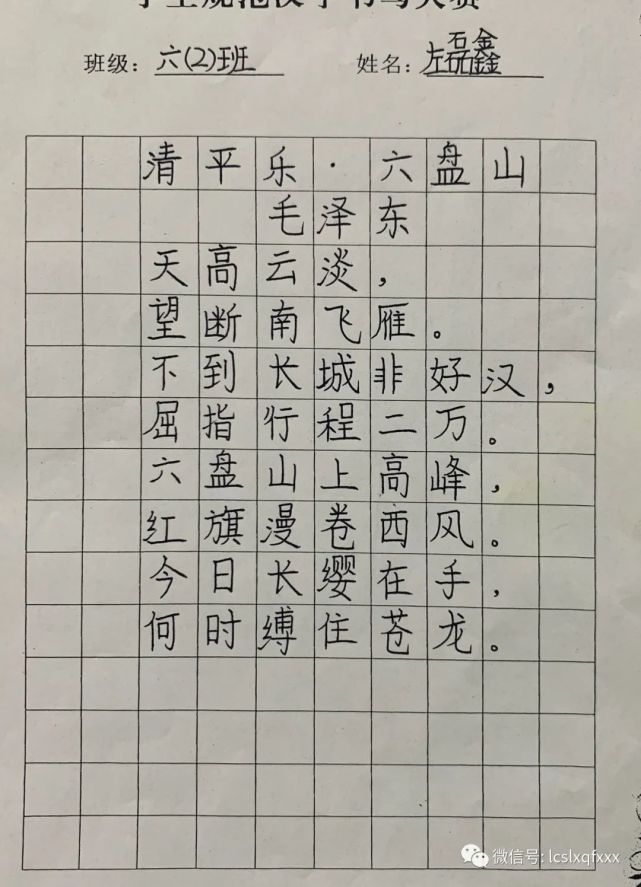 学生规范汉字书写大赛
班级：六(2)班 姓名：左磊鑫
清平乐·六盘山
毛泽东
天高云淡，
望断南飞雁。
不到长城非好汉，
屈指行程二万。
六盘山上高峰，
红旗漫卷西风。
今日长缨在手，
何时缚住苍龙。
微信号: lcslxqfxxx